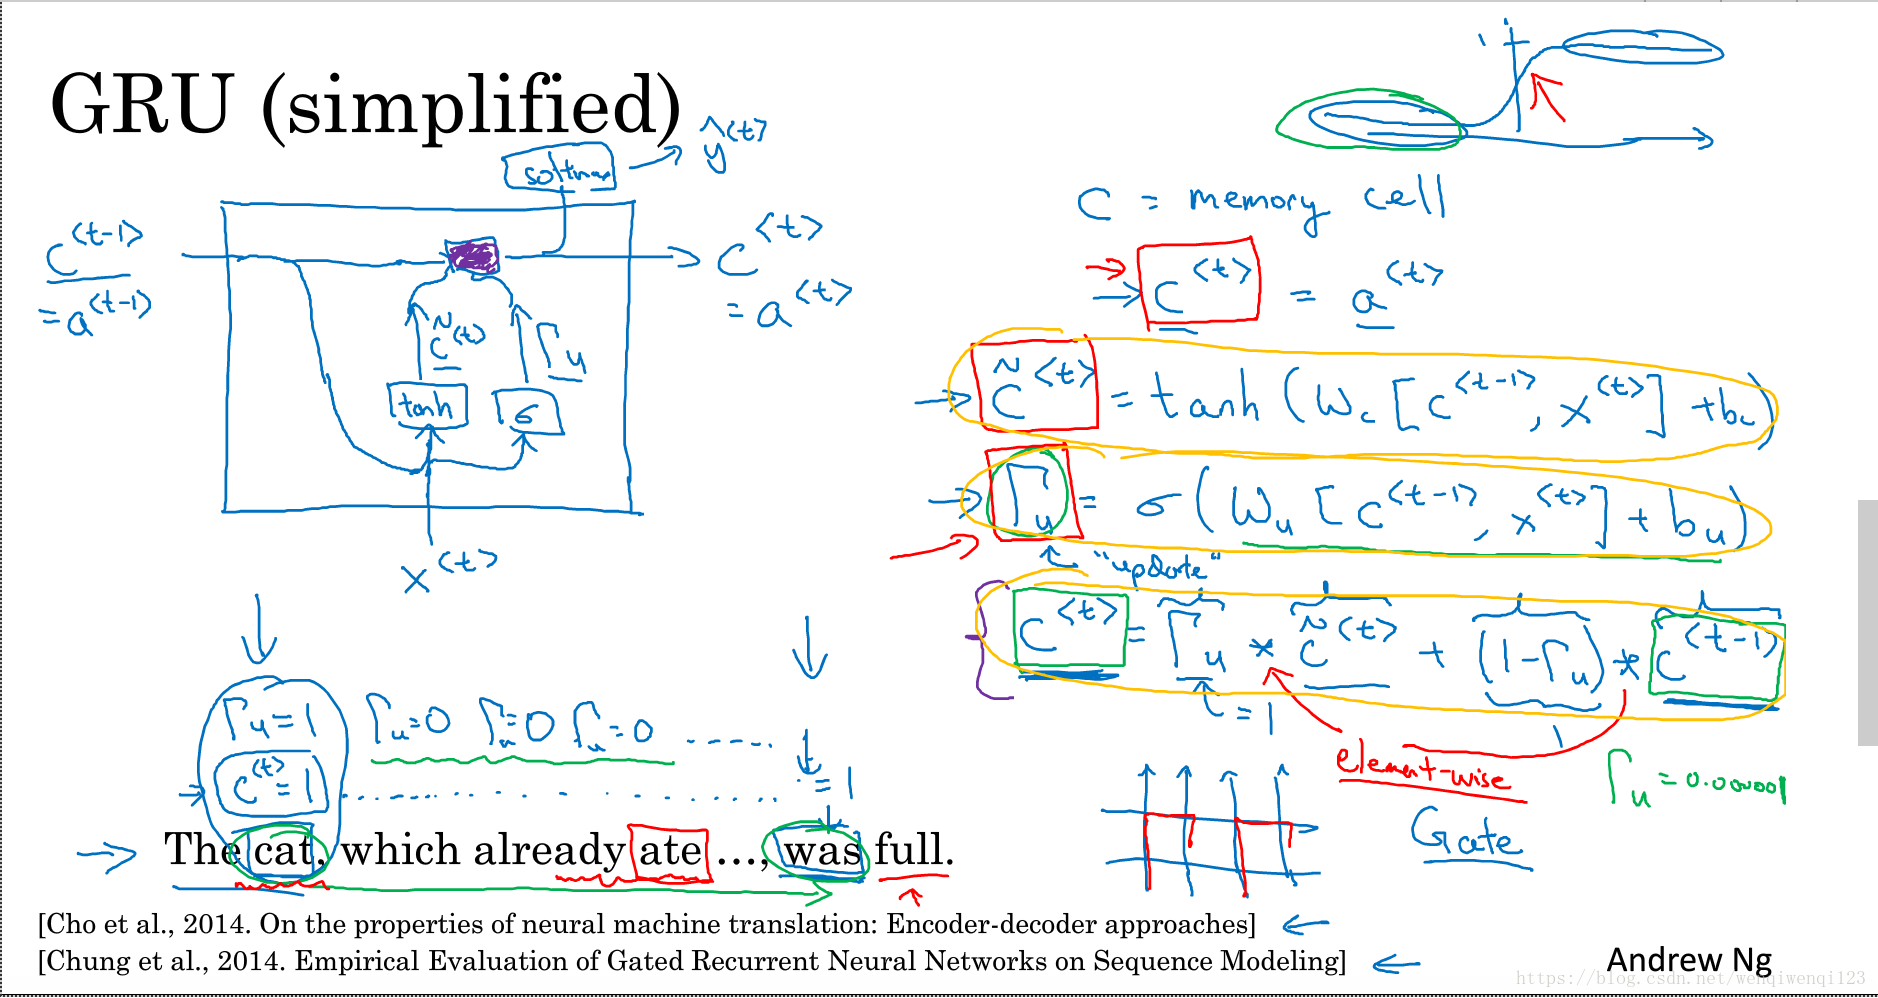 GRU (simplified)
softmax → ŷ<t>
c<t-1>
= a<t-1>
c<t>
= a<t>
c̃<t>
Γu
tanh
σ
x<t>
1
c = memory cell
c<t> = a<t>
c̃<t> = tanh (Wc [c<t-1>, x<t>] + bc)
Γu = σ (Wu [c<t-1>, x<t>] + bu)
"update"
c<t> = Γu * c̃<t> + (1-Γu) * c<t-1>
= 1
element-wise
Γu = 0.000001
Gate
Γu = 1 Γu = 0 Γu = 0 Γu = 0 ......
c<t> = 1 ........ = 1
The cat, which already ate ..., was full.
[Cho et al., 2014. On the properties of neural machine translation: Encoder-decoder approaches]
[Chung et al., 2014. Empirical Evaluation of Gated Recurrent Neural Networks on Sequence Modeling]
Andrew Ng
https://blog.csdn.net/wenqiwenqi123